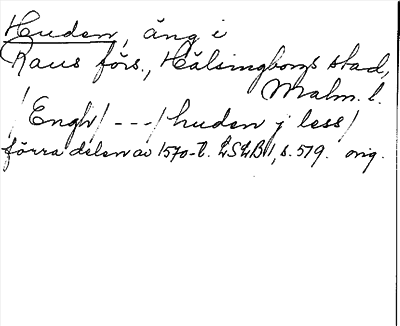 Huden, äng i
Raus förs., Hälsingborgs stad,
Malm. l.
/Engh/ - - - /huden j less/
förra delen av 1570-t. LSLB 1, s. 579. orig.